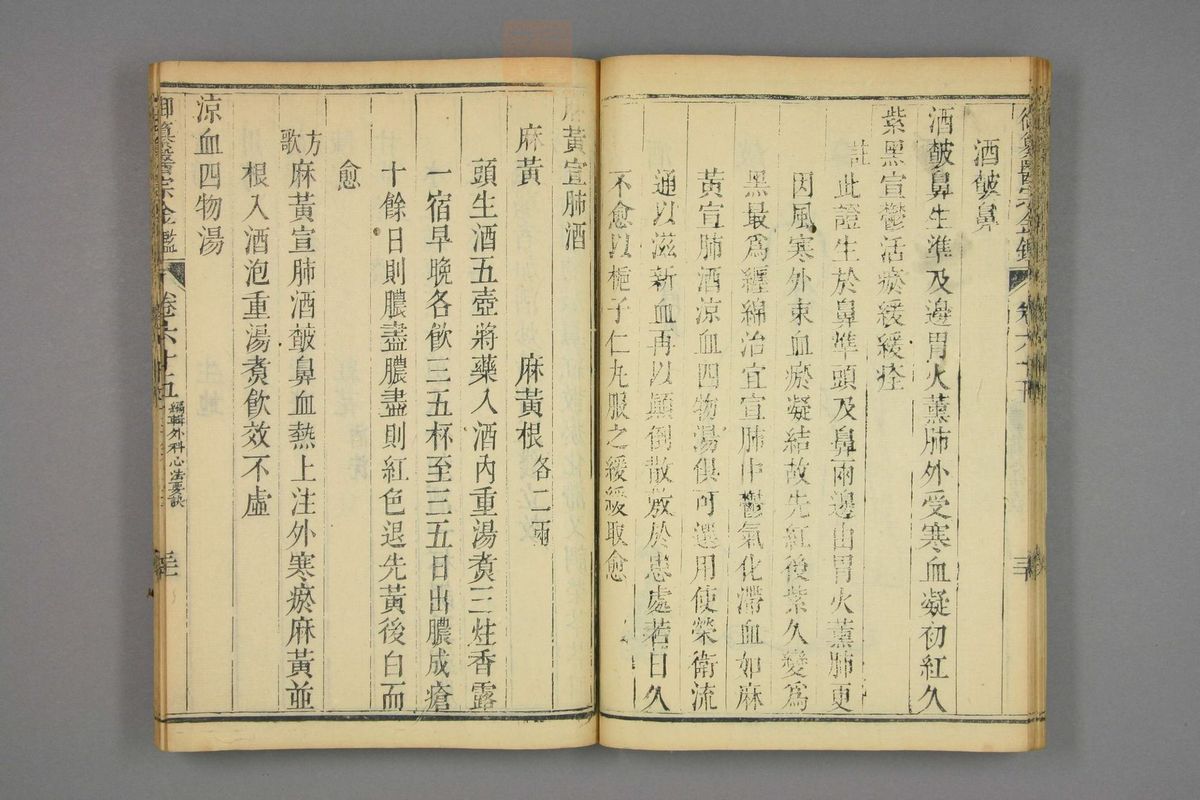 酒皶鼻
酒皶鼻生準及邊胃火薰肺外受寒血凝初紅久
紫黑宣鬱活瘀緩緩痊
註
此證生於鼻準頭及鼻兩邊由胃火薰肺更
因風寒外束血瘀凝結故先紅後紫久變爲
黑最爲纏綿治宜宣肺中鬱氣化滯血如麻
黃宣肺酒涼血四物湯俱可選用使榮衛流
通以滋新血再以顛倒散敷於患處若日久
不愈以梔子仁丸服之緩緩取愈
麻黃宣肺酒
麻黃 麻黃根各二兩
頭生酒五壺將藥入酒內重湯煑三炷香露
一宿早晚各飲三五杯至三五日出膿成瘡
十餘日則膿盡膿盡則紅色退先黃後白而
愈
方歌
麻黃宣肺酒皶鼻血熱上注外寒瘀麻黃並
根入酒泡重湯煑飲效不虛
涼血四物湯
御纂醫宗金鑑 卷六十五 編輯外科心法要訣